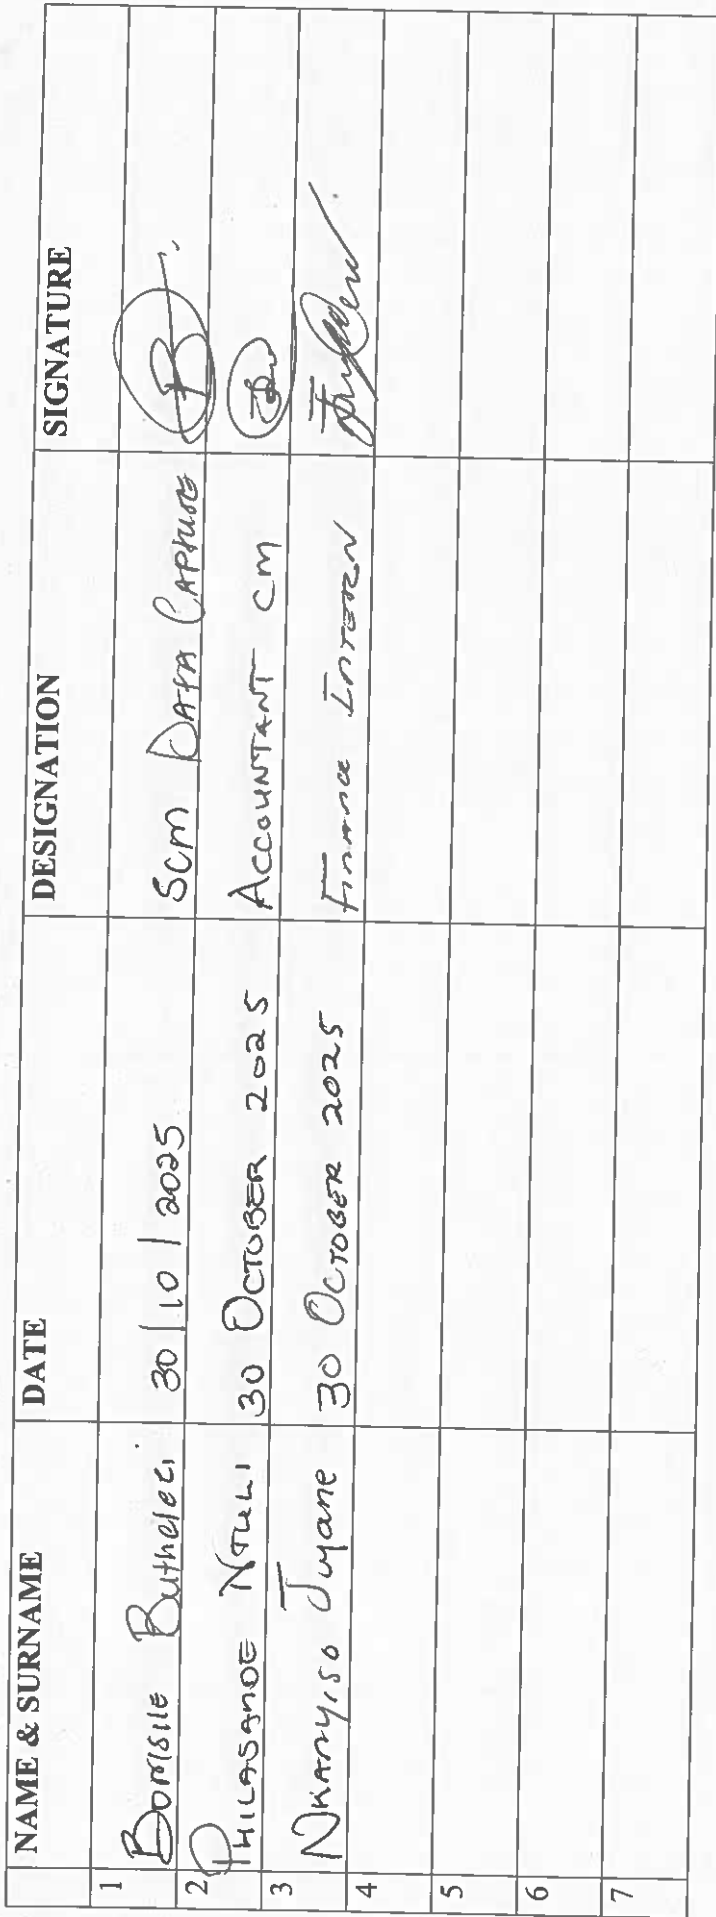 NAME & SURNAME DATE DESIGNATION SIGNATURE
1 Bonisile Buthelezi 30/10/2025 SCM DATA CAPTURE
2 PHILASANDE NTULI 30 OCTOBER 2025 ACCOUNTANT CM
3 NKANYISO Juyane 30 OCTOBER 2025 Finance INTERN
4
5
6
7